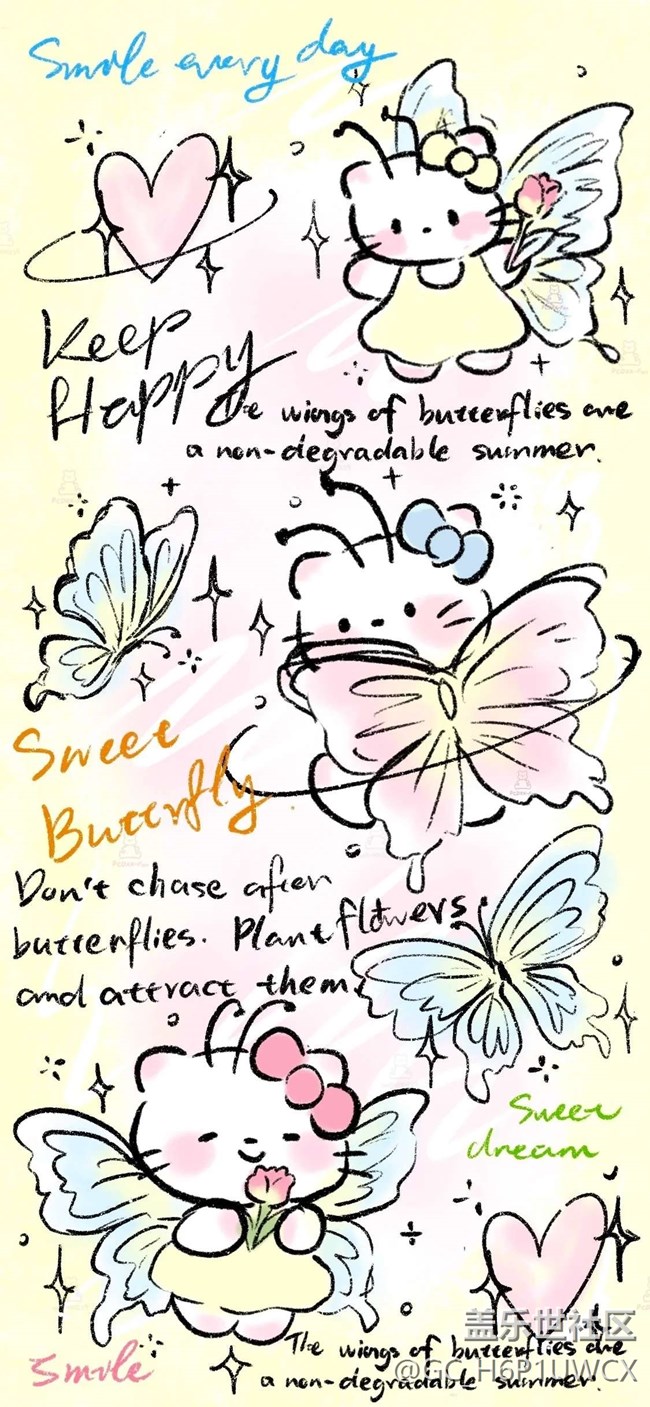 Smile every day
Keep
Happy
The wings of butterflies are
a non-degradable summer.
Sweet
Butterfly
Don't chase after
butterflies. Plant flowers
and attract them.
Sweet
dream
盖乐世社区
The wings of butterflies are
@GC_H6P1UWCX
a non-degradable summer.
Smile